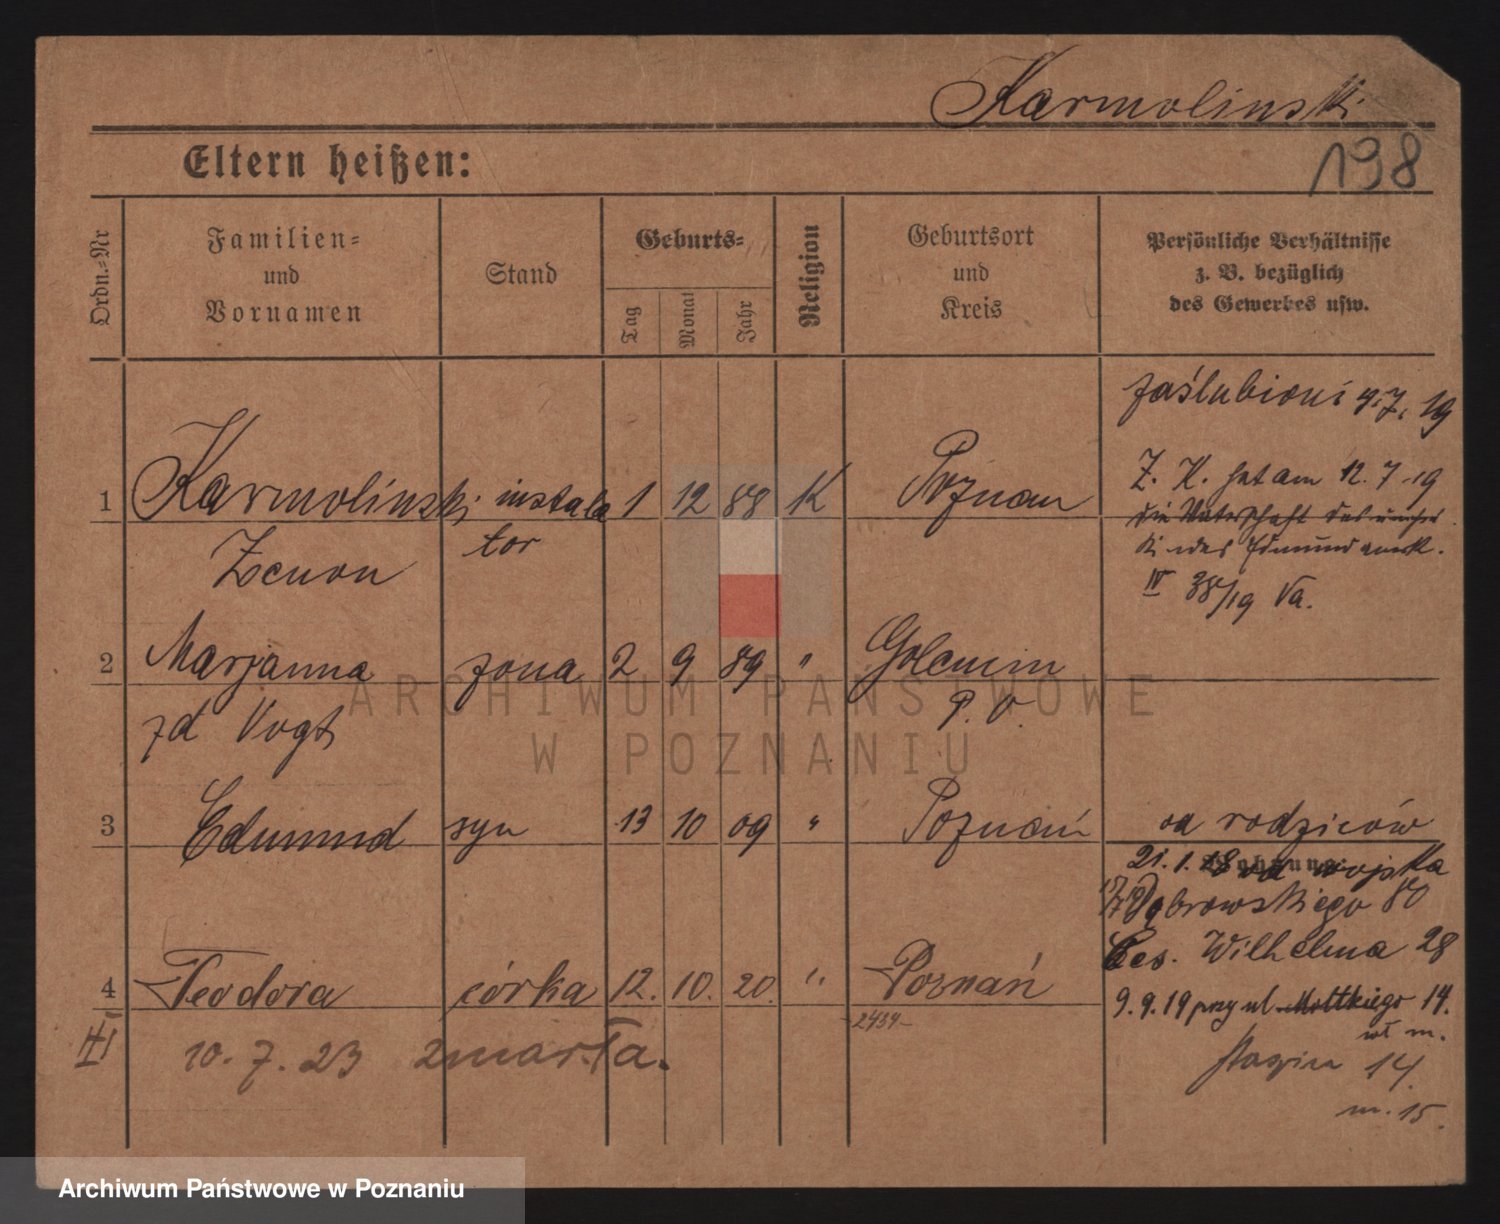 Karmolinski
198
Eltern heißen:
Ordn.=Nr
Familien=
und
Vornamen
Stand
Geburts=
Tag
Monat
Jahr
Religion
Geburtsort
und
Kreis
Persönliche Verhältnisse
z. B. bezüglich
des Gewerbes usw.
zaślubieni 9.7.19
1 Karmolinski instala 1 12 88 K Poznan
Zenon tor
Z. K. hat am 12. 7. 19
die Vaterschaft des
Kindes Edmund anerk.
IV 38/19 Va.
2 Marjanna żona 2 9 89 " Golencin
zd Vogt P. O.
3 Edmund syn 13 10 09 " Poznań
od rodziców
Wohnung:
21. 1. 18 od wojska
Dąbrowskiego 80
Ces. Wilhelma 28
4 Teodora córka 12. 10. 20. " Poznań
9. 9. 19 przy ul. Moltkiego 14.
2434
wł m.
14.
m. 15.
10. 7. 23 zmarła.
ARCHIWUM PAŃSTWOWE
W POZNANIU
Archiwum Państwowe w Poznaniu